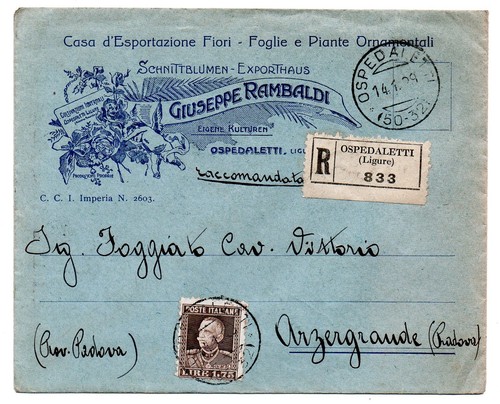 Casa d'Esportazione Fiori - Foglie e Piante Ornamentali
SCHNITTBLUMEN - EXPORTHAUS
GIUSEPPE RAMBALDI
EIGENE KULTUREN
OSPEDALETTI, LIGU
C. C. I. Imperia N. 2603.
OSPEDALETTI
14.1.29
(50-32)
raccomandata
R
OSPEDALETTI
(Ligure)
833
Sig. Foggiato Cav. Vittorio
POSTE ITALIANE
LIRE 1.75
Arzergrande (Padova)
(Prov. Padova)